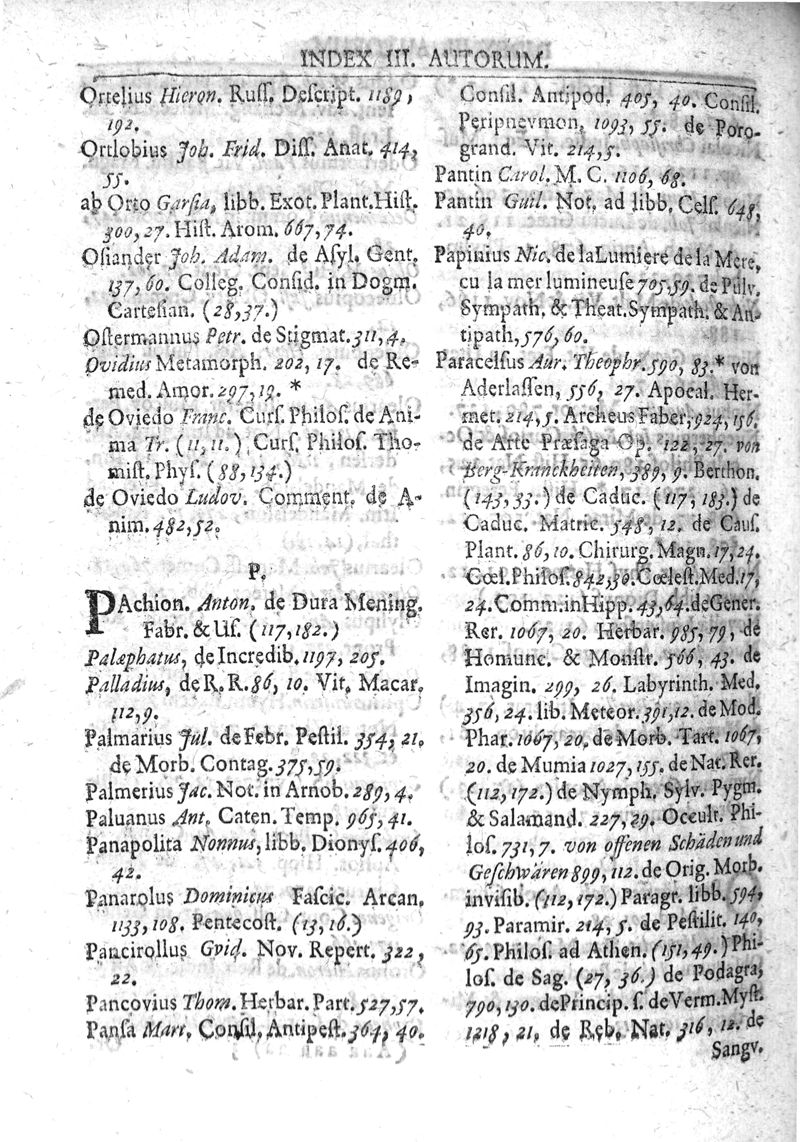 INDEX III. AUTORUM.
Ortelius Hieron. Ruſſ. Deſcript. 1189,
192.
Ortlobius Joh. Frid. Diſſ. Anat. 414,
55.
ab Orto Garſia, libb. Exot. Plant. Hiſt.
300, 27. Hiſt. Arom. 667, 74.
Oſiander Joh. Adam. de Aſyl. Gent.
137, 60. Colleg. Conſid. in Dogm.
Carteſian. (28, 37.)
Oſtermannus Petr. de Stigmat. 311, 4.
Ovidius Metamorph. 202, 17. de Re-
med. Amor. 297, 19. *
de Oviedo Franc. Curſ. Philoſ. de Ani-
ma Tr. (11, 11.) Curſ. Philoſ. Tho-
miſt. Phyſ. (88, 134.)
de Oviedo Ludov. Comment. de A-
nim. 482, 52.
P.
PAchion. Anton. de Dura Mening.
Fabr. & Uſ. (117, 182.)
Palæphatus, de Incredib. 1197, 205.
Palladius, de R. R. 86, 10. Vit. Macar.
112, 9.
Palmarius Jul. de Febr. Peſtil. 354, 21.
de Morb. Contag. 375, 59.
Palmerius Jac. Not. in Arnob. 289, 4.
Paluanus Ant. Caten. Temp. 965, 41.
Panapolita Nonnus, libb. Dionyſ. 406,
42.
Panarolus Dominicus Faſcic. Arcan.
1133, 108. Pentecoſt. (13, 16.)
Pancirollus Gvid. Nov. Repert. 322,
22.
Pancovius Thom. Herbar. Part. 527, 57.
Panſa Mart. Conſil. Antipeſt. 364, 40.
Conſil. Antipod. 405, 40. Conſil.
Peripnevmon. 1093, 55. de Poro-
grand. Vit. 214, 5.
Pantin Carol. M. C. 1106, 68.
Pantin Guil. Not. ad libb. Celſ. 648,
40.
Papinius Nic. de la Lumiere de la Mere,
cu la mer lumineuſe 705. 59. de Pulv.
Sympath. & Theat. Sympath. & An-
tipath, 576, 60.
Paracelſus Aur. Theophr. 590, 83. * von
Aderlaſſen, 556, 27. Apocal. Her-
met. 214, 5. Archeus Faber, 924, 156.
de Arte Præſaga Op. 122, 27. von
Berg-Kranckheiten, 389, 9. Berthon.
(143, 33.) de Caduc. (117, 183.) de
Caduc. Matric. 548, 12. de Cauſ.
Plant. 86, 10. Chirurg. Magn. 17, 24.
Cœl. Philoſ. 842, 30. Cœleſt. Med. 17,
24. Comm. in Hipp. 43, 64. de Gener.
Rer. 1067, 20. Herbar. 985, 79, de
Homunc. & Monſtr. 566, 43. de
Imagin. 299, 26. Labyrinth. Med.
356, 24. lib. Meteor. 391, 12. de Mod.
Phar. 1067, 20. de Morb. Tart. 1067,
20. de Mumia 1027, 155. de Nat. Rer.
(112, 172.) de Nymph. Sylv. Pygm.
& Salamand. 227, 29. Occult. Phi-
loſ. 731, 7. von offenen Schäden und
Geſchwären 899, 112. de Orig. Morb.
inviſib. (112, 172.) Paragr. libb. 594,
93. Paramir. 214, 5. de Peſtilit. 140,
65. Philoſ. ad Athen. (151, 49.) Phi-
loſ. de Sag. (27, 36.) de Podagra,
790, 130. de Princip. ſ. de Verm. Myſt.
1218, 21. de Reb. Nat. 316, 12. de
Sangv.